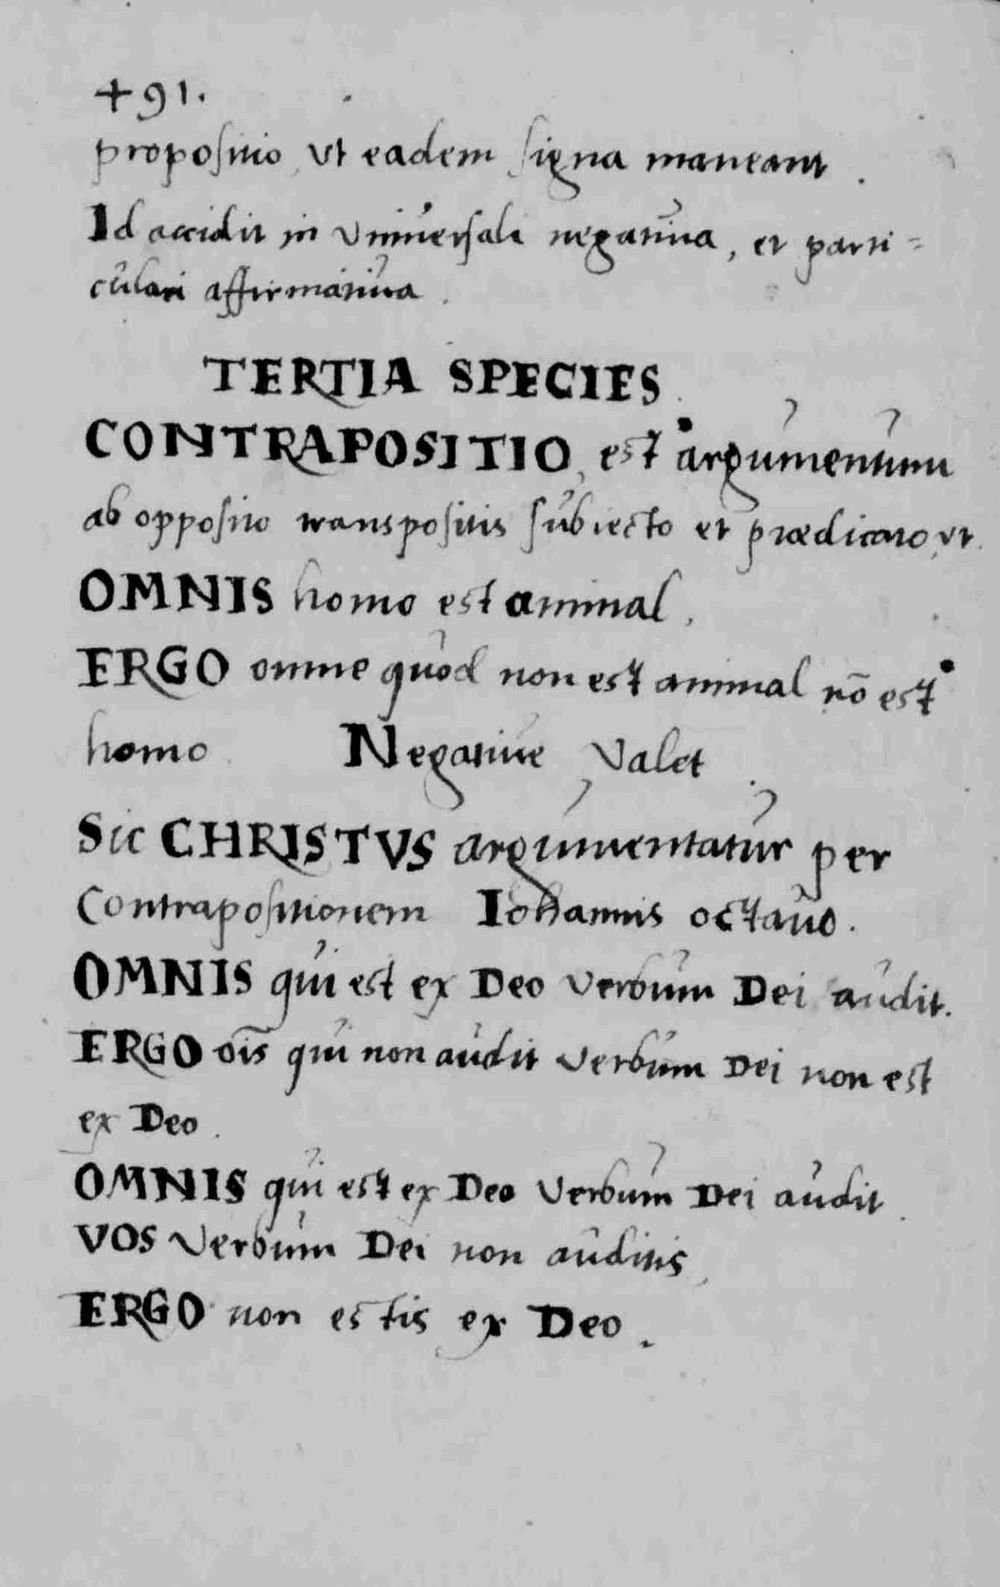 +91.
propositio, ut eadem signa maneant.
Id accidit in Universali negativa, et parti=
culari affirmativa.
TERTIA SPECIES.
CONTRAPOSITIO, est argumentum
ab opposito transpositis subiecto et prædicato, ut.
OMNIS homo est animal.
ERGO omne quod non est animal nō est
homo. Negative Valet.
Sic CHRISTVS argumentatur per
Contrapositionem Iohannis octavo.
OMNIS qui est ex Deo Verbum Dei audit.
ERGO oīs qui non audit Verbum Dei non est
ex Deo.
OMNIS qui est ex Deo Verbum Dei audit.
VOS Verbum Dei non auditis,
ERGO non estis ex Deo.